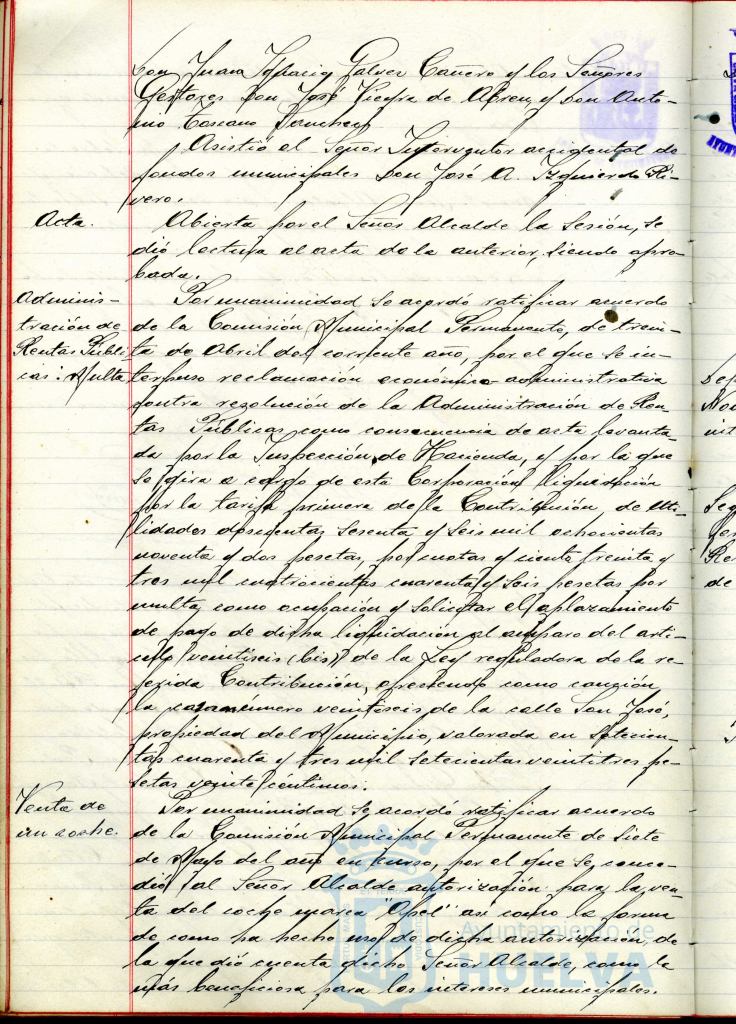 Don Juan Ignacio Galvez Cañero y los Señores
Gestores Don José Vieyra de Abreu y Don Anto-
nio Toscano Sanchez
Asistió el Señor Interventor accidental de
fondos municipales Don José A. Izquierdo Ri-
vero.
Acta.
Abierta por el Señor Alcalde la Sesión, se
dió lectura al acta de la anterior, siendo apro-
bada.
Adminis-
tración de
Rentas Públi-
cas: Multa
Por unanimidad se acordó ratificar acuerdo
de la Comisión Municipal Permanente, de trein-
ta de Abril del corriente año, por el que se in-
terpuso reclamación económico-administrativa
contra resolución de la Administración de Ren-
tas Públicas como consecuencia de acta levanta-
da por la Inspección de Hacienda, y por la que
se gira a cargo de esta Corporación liquidación
por la tarifa primera de la Contribución, de Uti-
lidades doscientas sesenta y seis mil ochocientas
noventa y dos pesetas, por cuotas y ciento treinta y
tres mil cuatrocientas cuarenta y seis pesetas por
multa, como ocupación y solicitar el aplazamiento
de pago de dicha liquidación al amparo del artí-
culo veintiseis (bis) de la Ley reguladora de la re-
ferida Contribución, ofreciendo como caución
la casa número veintiseis de la calle San José,
propiedad del Municipio, valorada en setecien-
tas cuarenta y tres mil setecientas veintitres pe-
setas veinte céntimos.
Venta de
un coche.
Por unanimidad se acordó ratificar acuerdo
de la Comisión Municipal Permanente de siete
de Mayo del año en curso, por el que se conce-
dió al Señor Alcalde autorización para la ven-
ta del coche marca "Opel" asi como la forma
de como ha hecho uso de dicha autorización, de
la que dió cuenta dicho Señor Alcalde, como la
más beneficiosa para los intereses municipales.
Ayuntamiento de
HUELVA